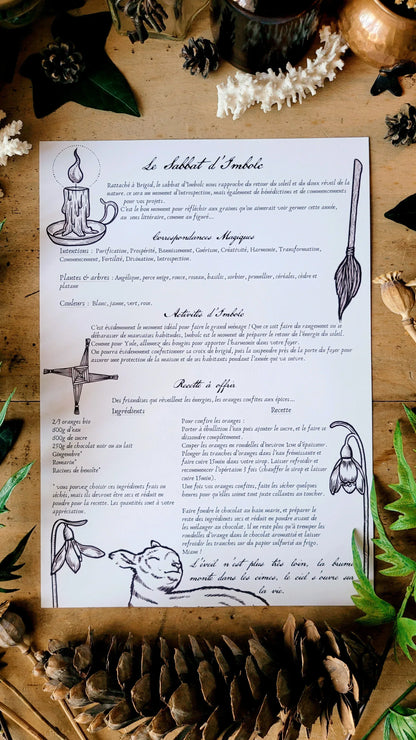 Le Sabbat d'Imbolc
Rattaché à Brigid, le sabbat d'Imbolc nous rapproche du retour du soleil et du doux réveil de la
nature. ce sera un moment d'introspection, mais également de bénédictions et de commencements
pour vos projets.
C'est le bon moment pour réfléchir aux graines qu'on aimerait voir germer cette année,
au sens littéraire, comme au figuré...
Correspondances Magiques
Intentions : Purification, Prospérité, Bannissement, Guérison, Créativité, Harmonie, Transformation,
Commencement, Fertilité, Divination, Introspection.
Plantes & arbres : Angélique, perce neige, ronce, rowan, basilic, sorbier, prunellier, céréales, cèdre et
platane
Couleurs : Blanc, jaune, vert, rose.
Activités d'Imbolc
C'est évidemment le moment idéal pour faire le grand ménage ! Que ce soit faire du rangement ou se
débarasser de mauvaises habitudes, Imbolc est le moment de préparer le retour de l'énergie du soleil.
Comme pour Yule, allumez des bougies pour apporter l'harmonie dans votre foyer.
On pourra évidemment confectionner sa croix de brigid, puis la suspendre près de la porte du foyer pour
assurer une protection de la maison et de ses habitants pendant l'année qui va suivre.
Recette à offrir
Des friandises qui réveillent les énergies, les oranges confites aux épices...
Ingrédients
2/3 oranges bio
500g d'eau
500g de sucre
250g de chocolat noir ou au lait
Gingembre*
Romarin*
Racines de benoîte*
* vous pouvez choisir ces ingrédients frais ou
séchés, mais ils devront être secs et réduit en
poudre pour la recette. Les quantités sont à votre
appréciation.
Recette
Pour confire les oranges :
Porter à ébullition l'eau puis ajouter le sucre, et le faire se
dissoudre complètement.
Couper les oranges en rondelles d'environ 1cm d'épaisseur.
Plonger les tranches d'oranges dans l'eau frémissante et
faire cuire 15min dans votre sirop. Laisser refroidir et
recommencer l'opération 3 fois (chauffer le sirop et laisser
cuire 15min).
Une fois vos oranges confites, faite les sécher quelques
heures pour qu'elles soient tout juste collantes au toucher.
Faire fondre le chocolat au bain marie, et préparer le
reste des ingrédients secs et réduit en poudre avant de
les mélanger au chocolat. Il ne reste plus qu'à tremper les
rondelles d'orange dans le chocolat aromatisé et laisser
refroidir les tranches sur du papier sulfurisé au frigo.
Miam !
L'éveil n'est plus très loin, la brume
monte dans les cimes, le ciel s'ouvre sur
la vie.